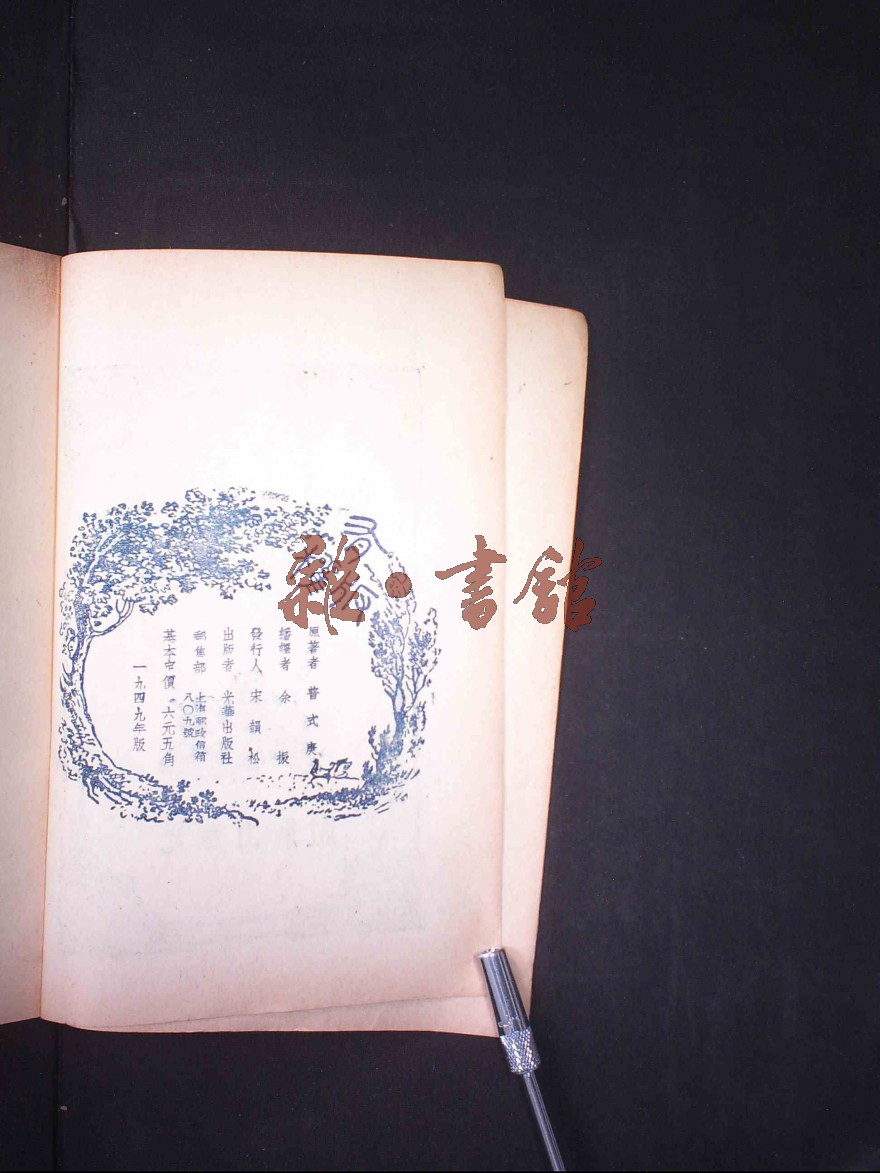 雜·書館
原著者 普式庚
繙譯者 余振
發行人 宋韻松
出版者 光華出版社
郵售部 上海郵政信箱
八〇九號
基本定價 六元五角
一九四九年版